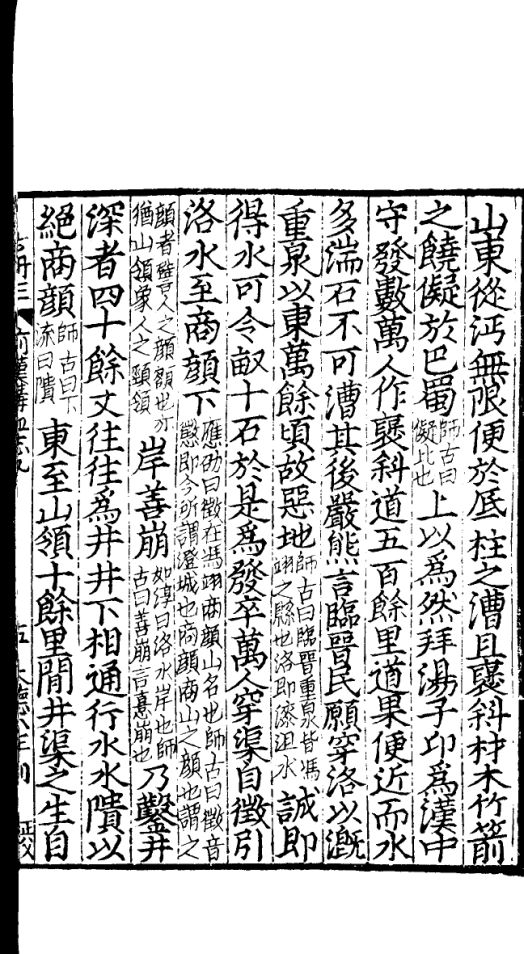 山東從沔無限便於底柱之漕且襃斜材木竹箭
之饒儗於巴蜀師古曰儗比也上以爲然拜湯子卬爲漢中
守發數萬人作襃斜道五百餘里道果便近而水
多湍石不可漕其後嚴熊言臨晉民願穿洛以漑
重泉以東萬餘頃故惡地師古曰臨晉重泉皆馮翊之縣也洛即漆沮水誠即
得水可令畝十石於是爲發卒萬人穿渠自徵引
洛水至商顔下應劭曰徵在馮翊商顔山名也師古曰徵音懲即今所謂澄城也商顔商山之顔也謂之
顔者譬人之顔額也亦猶山領象人之頸領岸善崩如淳曰洛水岸也師古曰善崩言憙崩也乃鑿井
深者四十餘丈往往爲井井下相通行水水隤以
絶商顔師古曰下流曰隤東至山領十餘里閒井渠之生自